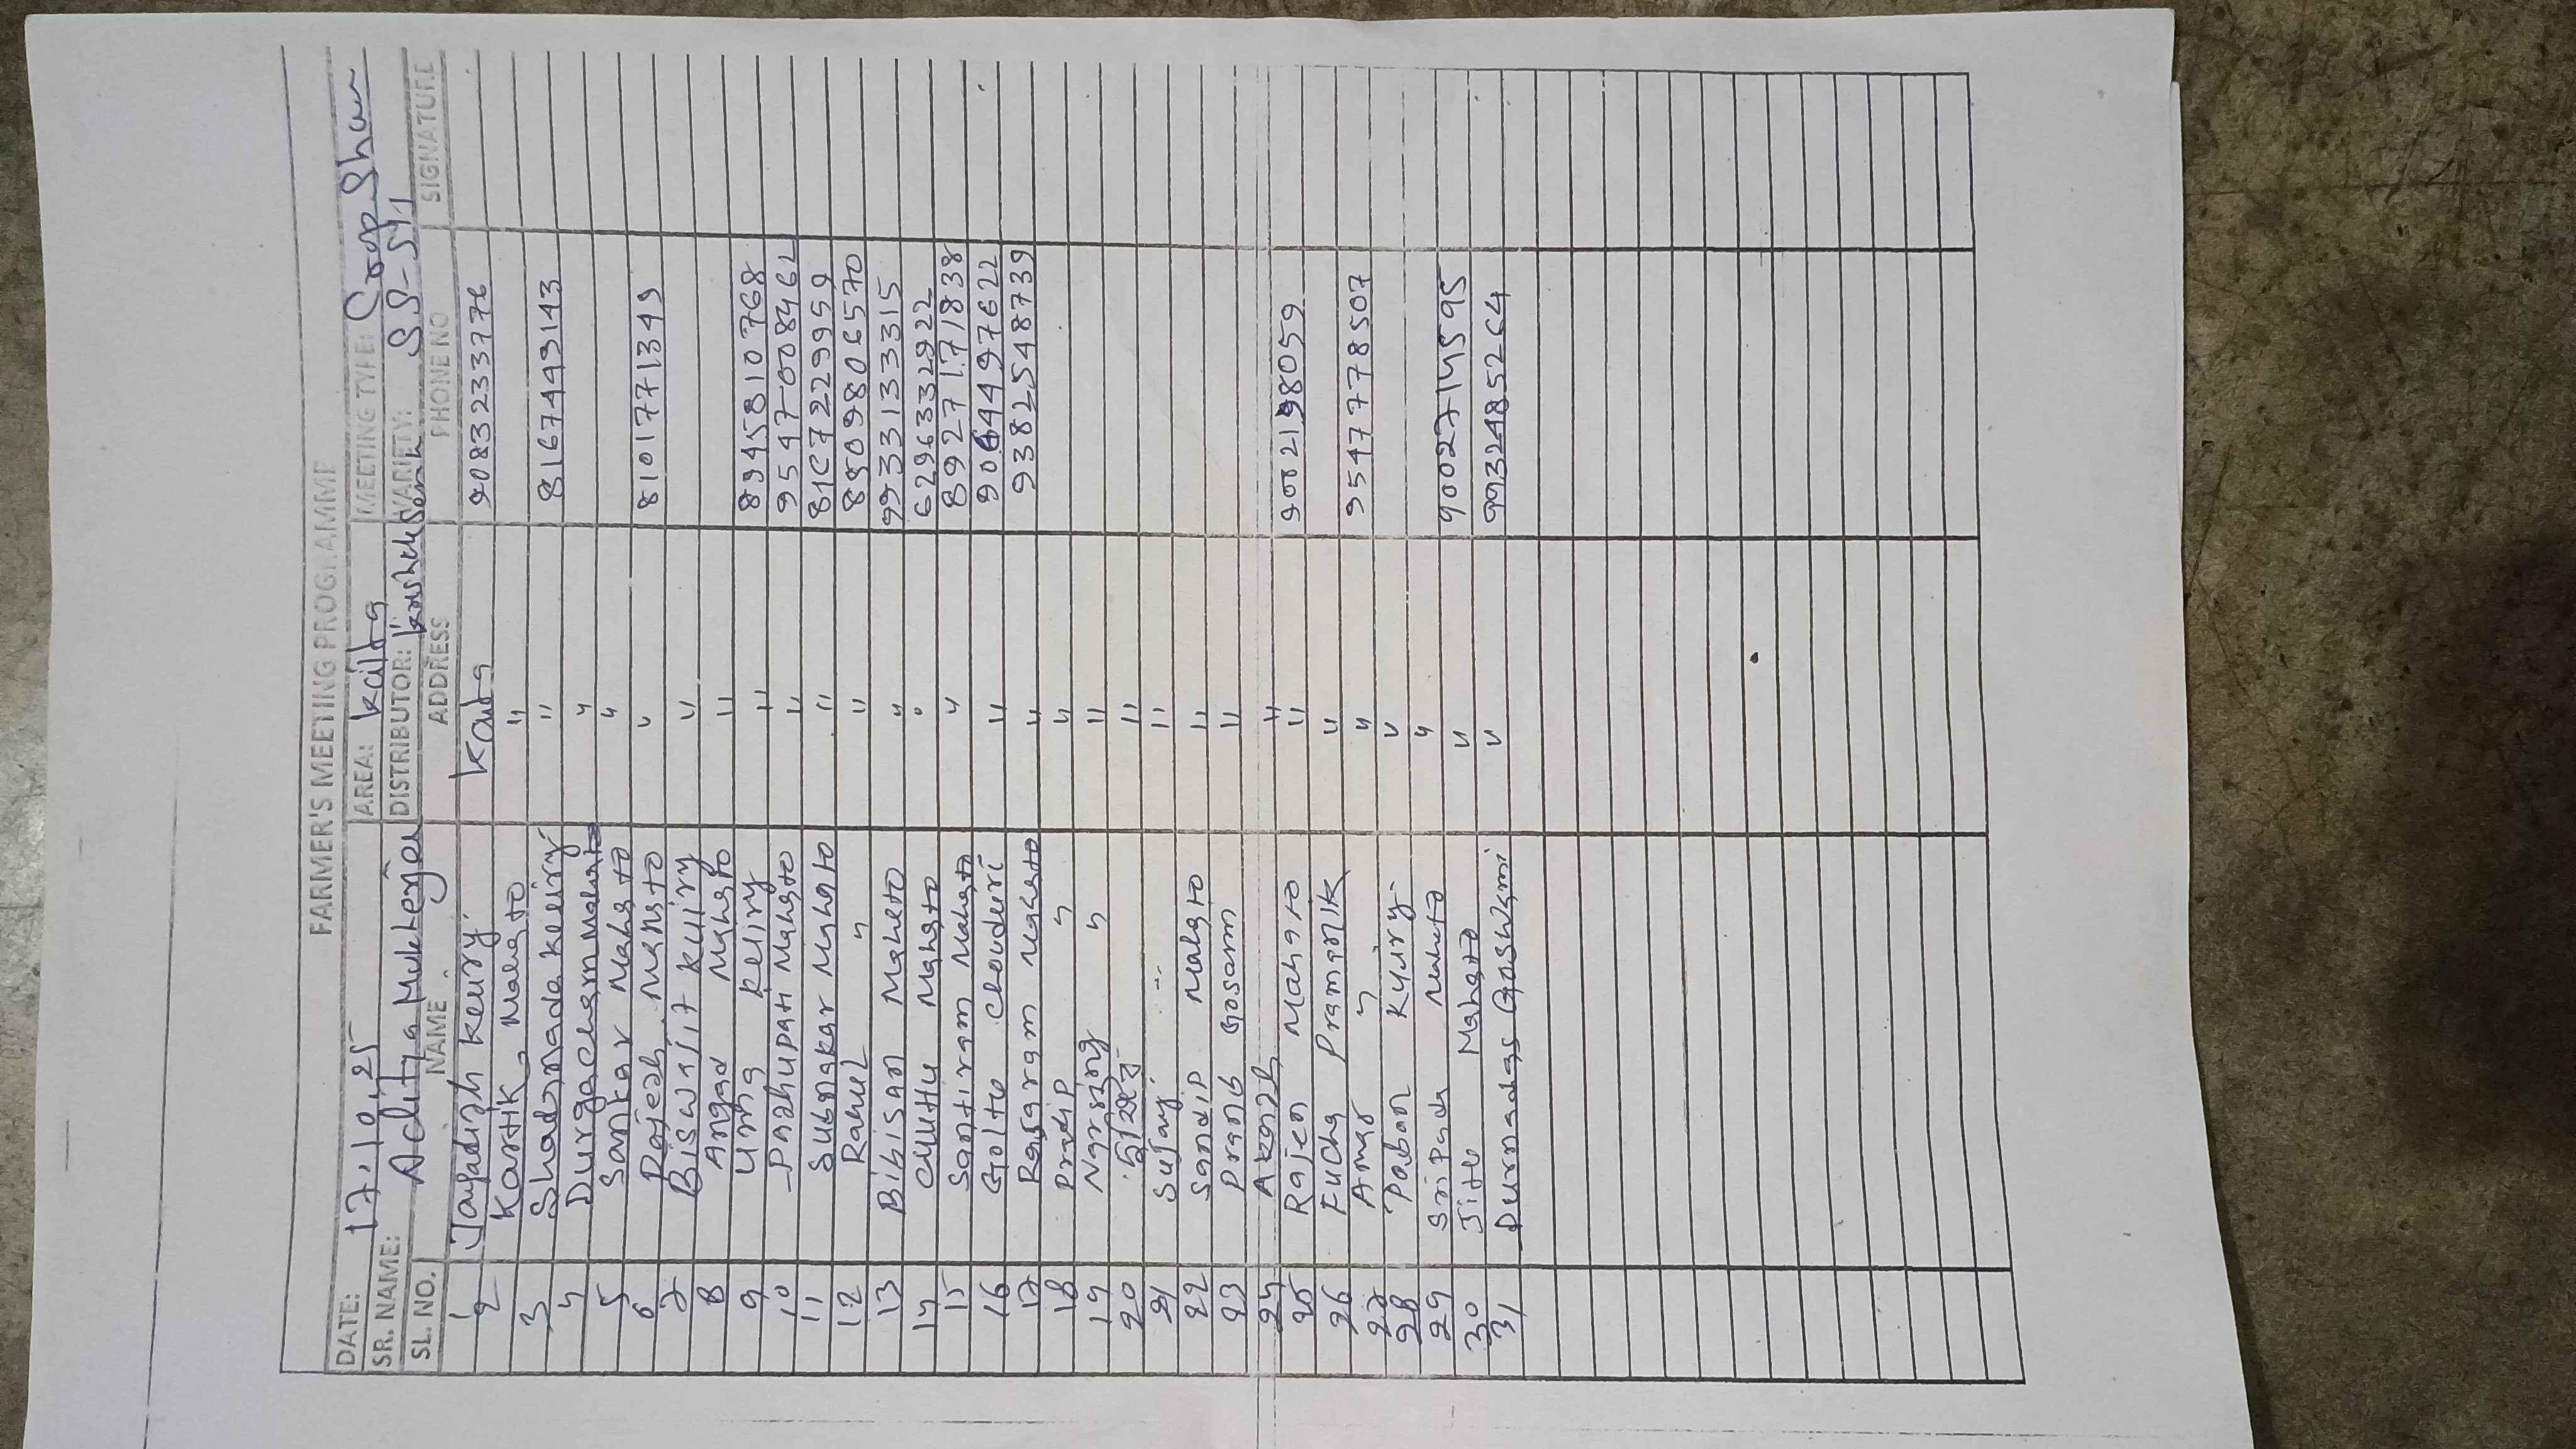 FARMER'S MEETING PROGRAMME
DATE: 17.10.25 AREA: Kaitra MEETING TYPE: Crop Show
SR. NAME: Aditya Mukherjee DISTRIBUTOR: VARIETY: SS-511
SL. NO. NAME ADDRESS PHONE NO SIGNATURE
1 Jagadish Keury 9083233776
2 Kartik Mahato "
3 " 8167449143
4 Durgacharn Mahato "
5 Sankar Mahato "
6 Rajesh Mahsto " 8101771349
7 Biswajit Kuiry "
8 Angad Mahato "
9 Uma Keuiry " 8945810768
10 Pashupati Mahato " 9547008462
11 Subhakar Mahato " 8167229959
12 Rahul " " 8909806570
13 Bibisan Maheto " 9933133315
14 Chuttu Mahato " 6296332922
15 Santiram Mahato " 8927171838
16 Goltu Chouduri " 9064497622
17 Rajaram Mahato " 9382548739
18 Pradip " "
19 Narsing " "
20 "
21 Sujay "
22 Sandip Mahato "
23 Pranab Gosann "
24 Akansh "
25 Rajen Mahato " 9002198059
26 Fucha Pramanik "
27 Amar " " 9547778507
28 Paban Kyiry "
29 Sripada Mahato "
30 Jitu Mahato " 9002714595
31 Durnadas Goshwami " 9932485264